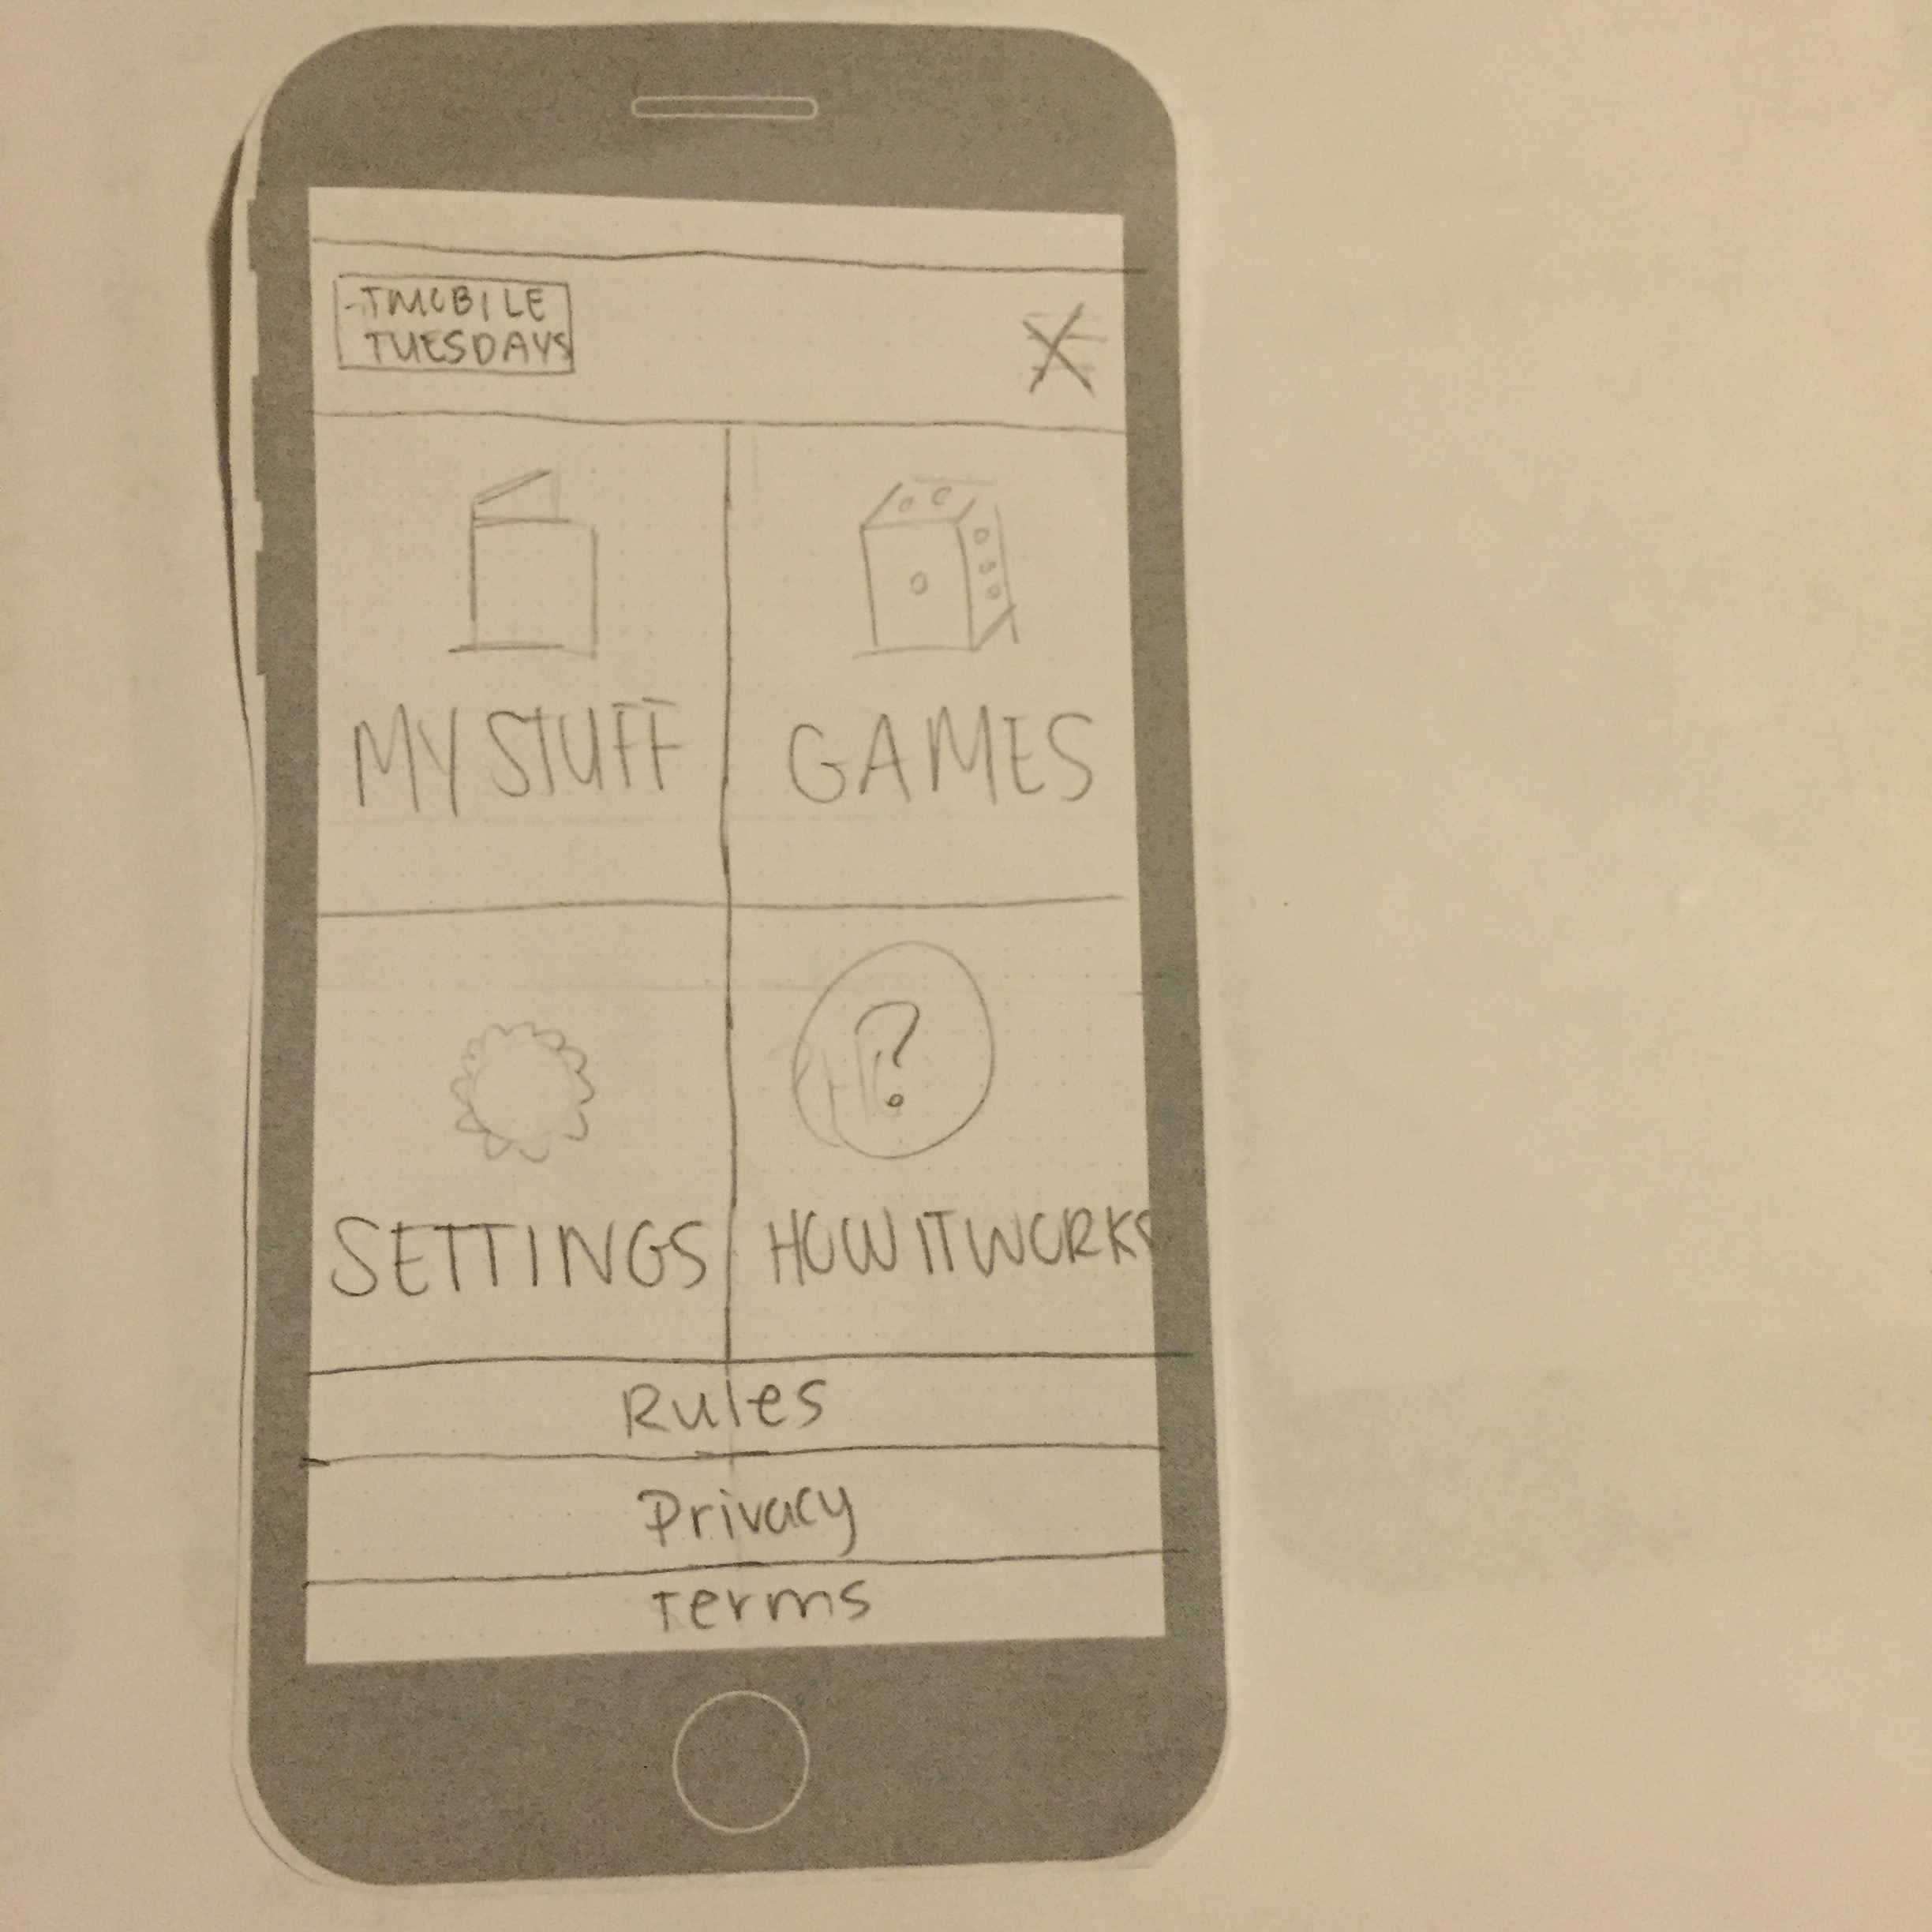 TMOBILE
TUESDAYS
X
MY STUFF
GAMES
?
SETTINGS
HOW IT WORKS
Rules
Privacy
Terms